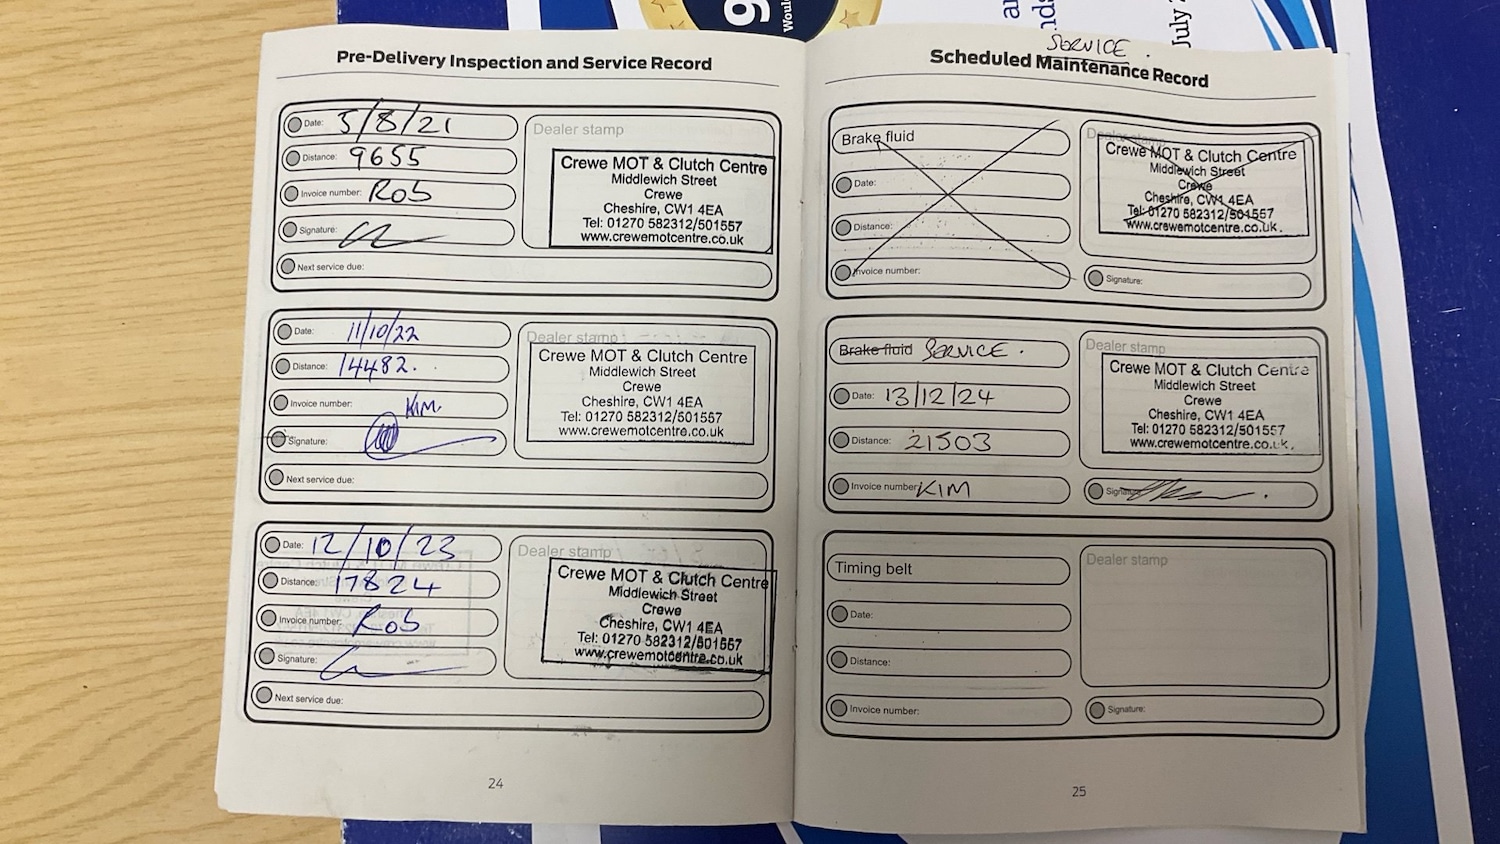 9
Would
July
Pre-Delivery Inspection and Service Record
Date: 5/8/21
Distance: 9655
Invoice number: Rob
Signature:
Next service due:
Dealer stamp
Crewe MOT & Clutch Centre
Middlewich Street
Crewe
Cheshire, CW1 4EA
Tel: 01270 582312/501557
www.crewemotcentre.co.uk
Date: 11/10/22
Distance: 14482.
Invoice number: KIM.
Signature:
Next service due:
Dealer stamp
Crewe MOT & Clutch Centre
Middlewich Street
Crewe
Cheshire, CW1 4EA
Tel: 01270 582312/501557
www.crewemotcentre.co.uk
Date: 12/10/23
Distance: 17824
Invoice number: Rob
Signature:
Next service due:
Dealer stamp
Crewe MOT & Clutch Centre
Middlewich Street
Crewe
Cheshire, CW1 4EA
Tel: 01270 582312/501557
www.crewemotcentre.co.uk
24
SERVICE.
Scheduled Maintenance Record
Brake fluid
Date:
Distance:
Invoice number:
Dealer stamp
Crewe MOT & Clutch Centre
Middlewich Street
Crewe
Cheshire, CW1 4EA
Tel: 01270 582312/501557
www.crewemotcentre.co.uk.
Signature:
Brake fluid SERVICE.
Date: 13/12/24
Distance: 21503
Invoice number: KIM
Dealer stamp
Crewe MOT & Clutch Centre
Middlewich Street
Crewe
Cheshire, CW1 4EA
Tel: 01270 582312/501557
www.crewemotcentre.co.uk.
Signature:
Timing belt
Date:
Distance:
Invoice number:
Dealer stamp
Signature:
25